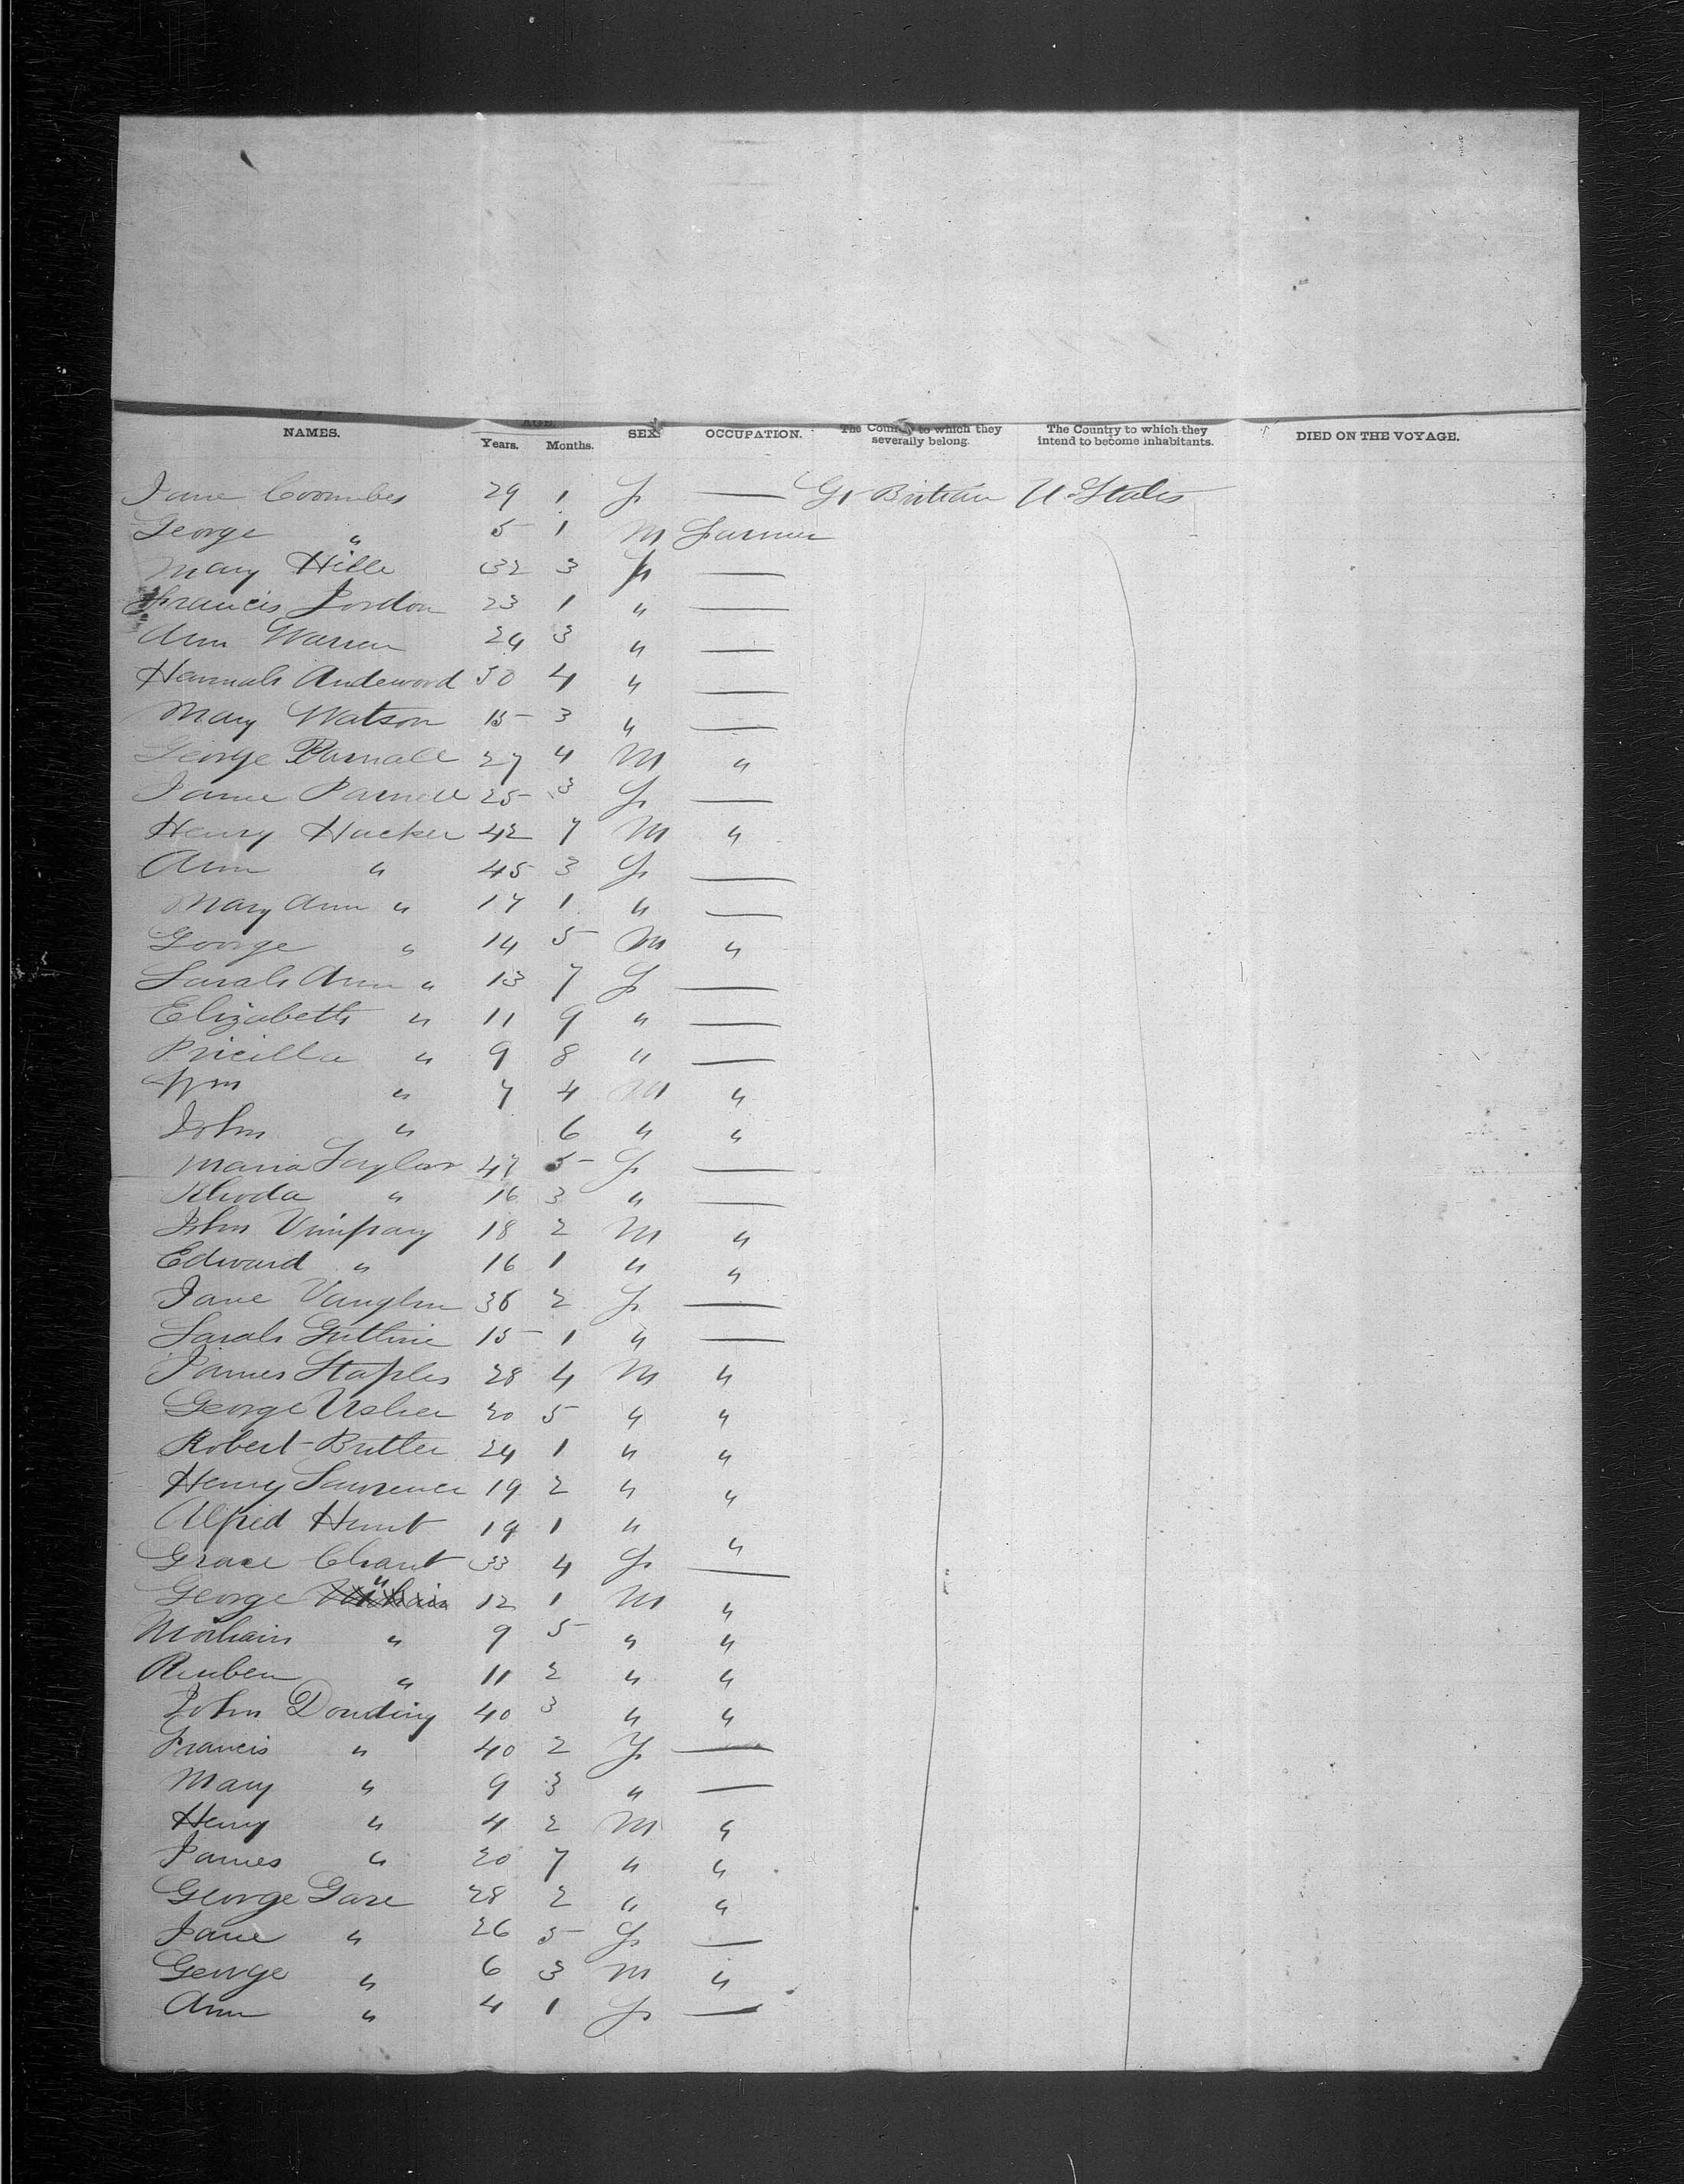 NAMES. AGE. Years. Months. SEX. OCCUPATION. The Country to which they severally belong. The Country to which they intend to become inhabitants. DIED ON THE VOYAGE.
Jane Coombes 29 1 F — Gt Britain U States
George " 5 1 M Farmer
Mary Hille 32 3 F —
Francis Jordon 23 1 " —
Ann Warren 24 3 " —
Hannah Andewood 50 4 " —
Mary Watson 15 3 " —
George Parnall 27 4 M "
Jane Parnell 25 3 F —
Henry Hacker 42 7 M "
Ann " 45 3 F —
Mary Ann " 17 1 " —
George " 14 5 M "
Sarah Ann " 13 7 F —
Elizabeth " 11 9 " —
Pricilla " 9 8 " —
Wm " 7 4 M "
John " 6 " "
Maria Taylor 47 5 F —
Rhoda " 16 3 " —
John Vimpany 18 2 M "
Edward " 16 1 " "
Jane Vaughn 36 2 F —
Sarah Guthrie 15 1 " —
James Staples 28 4 M "
George Usher 20 5 " "
Robert Butler 24 1 " "
Henry Lawrence 19 2 " "
Alfred Hunt 19 1 " "
Grace Chant 33 4 F —
George " 12 1 M "
" 9 5 " "
Reuben " 11 2 " "
John Douding 40 3 " "
Francis " 40 2 F —
Mary " 9 3 " —
Henry " 4 2 M "
James " 20 7 " "
George Gare 28 2 " "
Jane " 26 5 F —
George " 6 3 M "
Ann " 4 1 F —